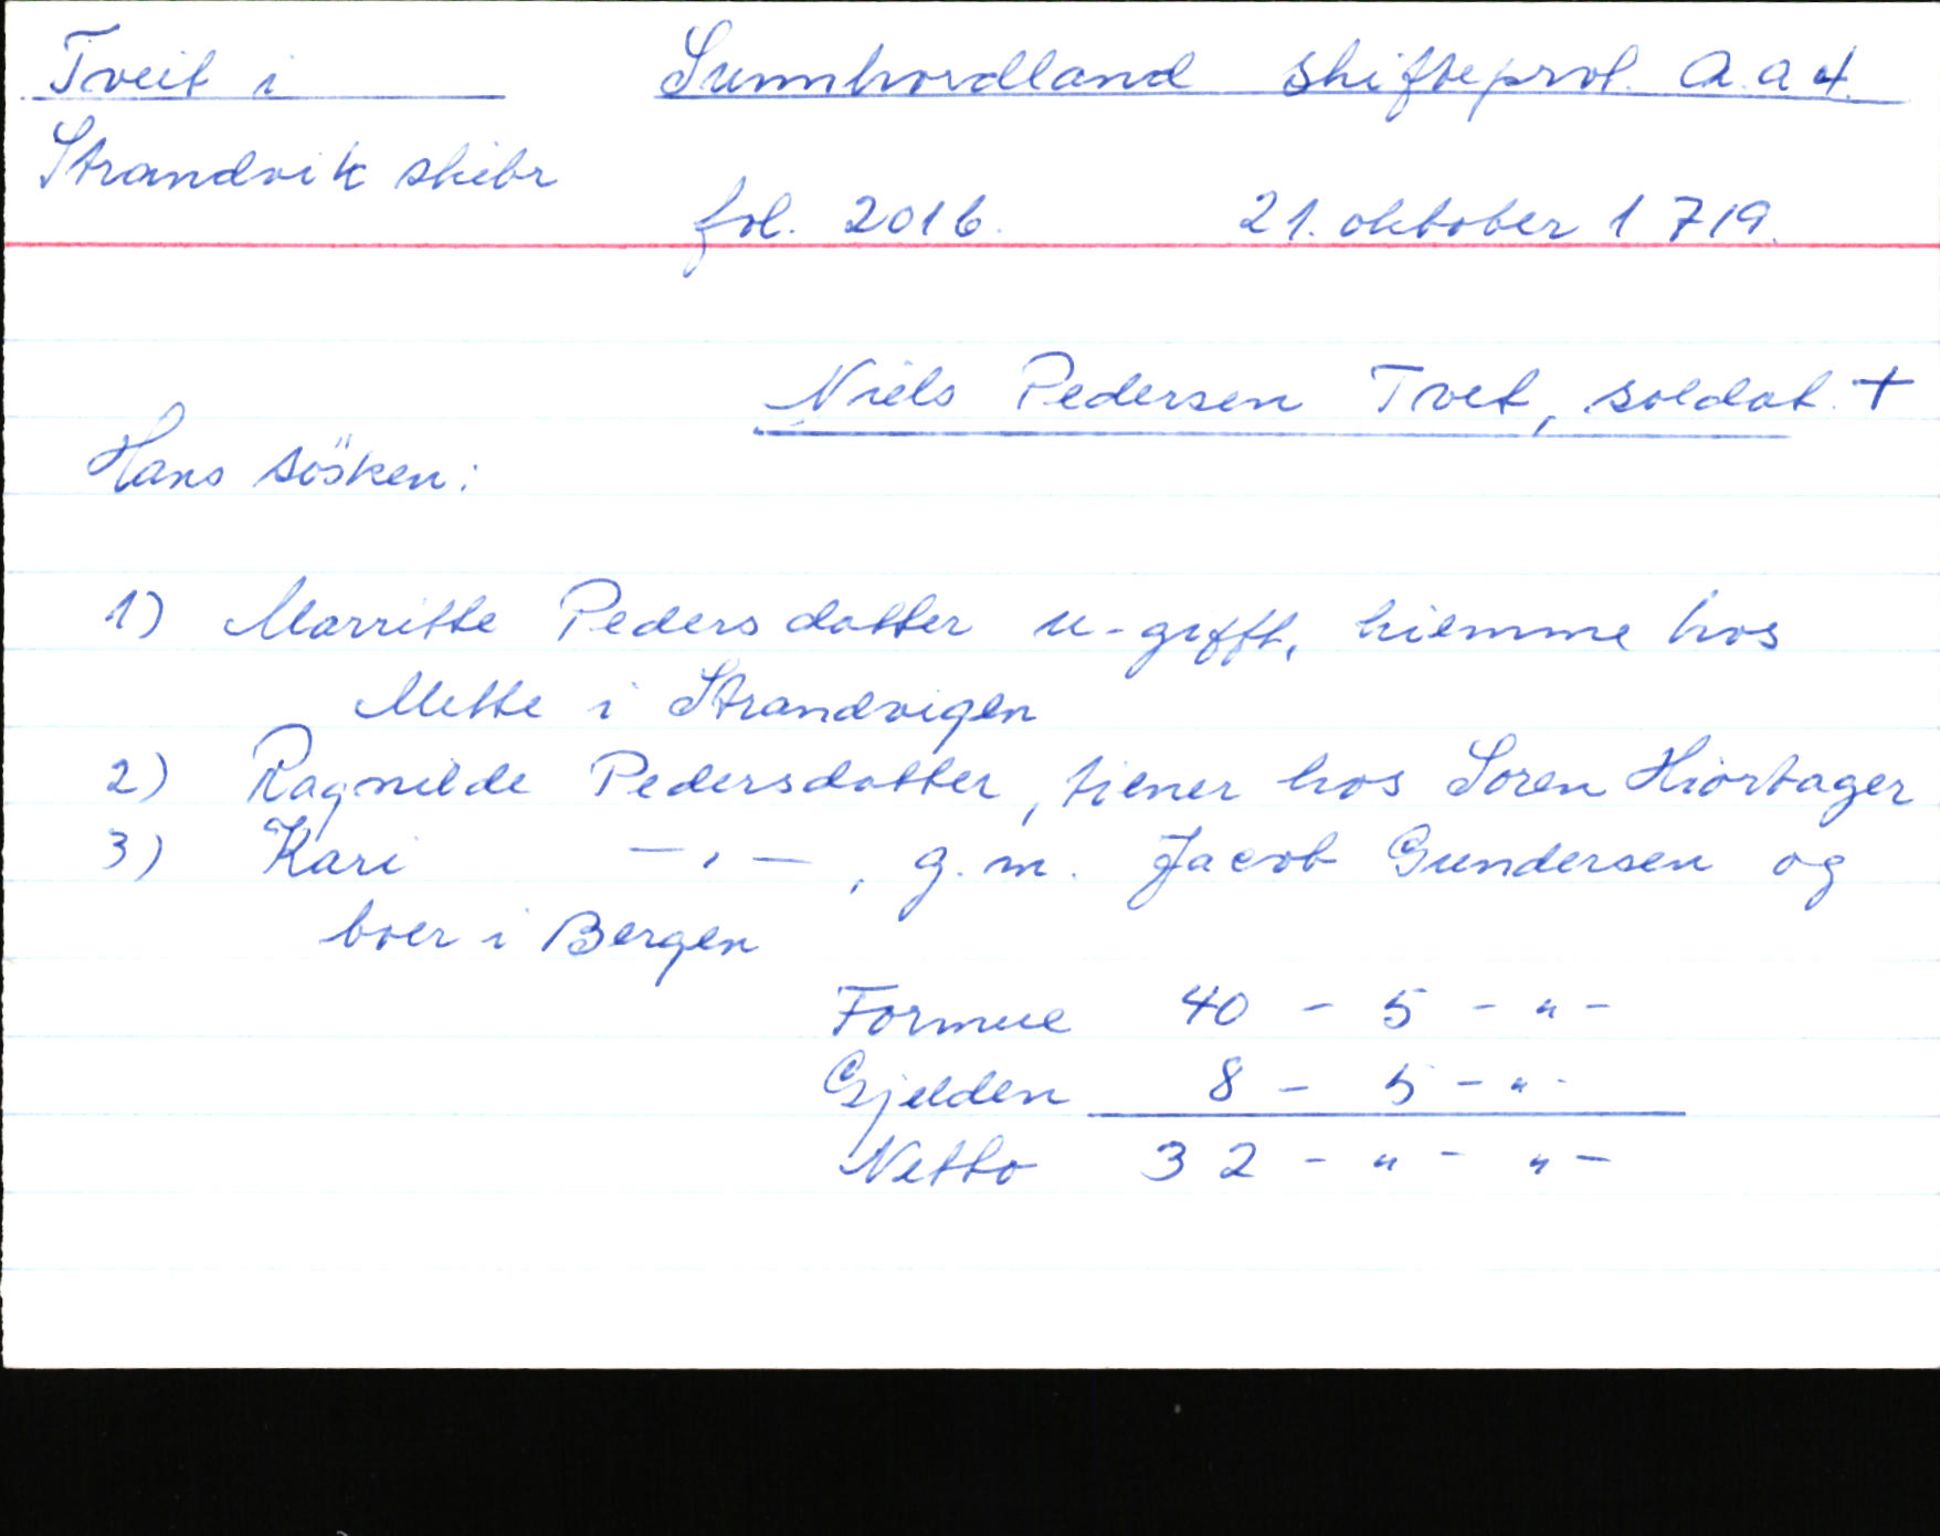 Tveit i Sunnhordland Skifteprot. A.a 4.
Strandvik skibr
fol. 201b. 21. oktober 1719.
Niels Pedersen Tvet, soldat. +
Hans sösken:
1) Marritte Pedersdatter u-gifft, hiemme hos
Mette i Strandvigen
2) Ragnilde Pedersdatter, tiener hos Soren Hiortager
3) Kari —,—, g.m. Jacob Gundersen og
boer i Bergen
Formue 40 - 5 - " -
Gjelden 8 - 5 - " -
Netto 32 - " - " -